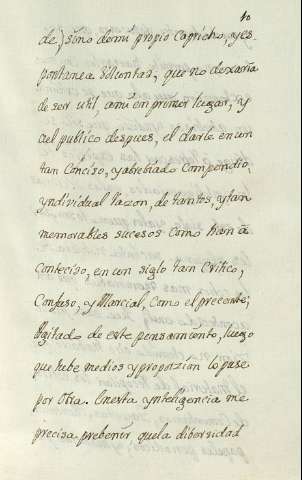 10
de) sino de mi propio Capricho, y es-
pontanea Voluntad, que no dexaria
de ser util, a mi en primer lugar, y
al publico despues, el darle en un
tan Conciso, y abrebiado Compendio,
yndividual Razon, de tantos, y tan
memorables sucesos como han a-
contecido, en un siglo tan Critico,
Confuso, y Marcial, Como el presente;
Agitado de este pensamiento, luego
que tube medios y proporzion lo puse
por Obra. En esta ynteligencia me
precisa prebenir, que la dibersidad